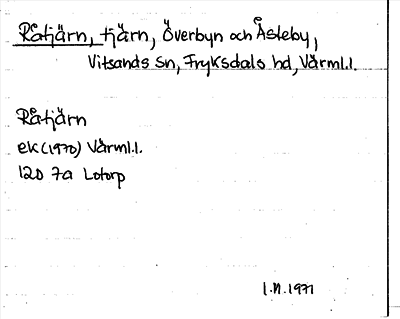 Råtjärn, tjärn, Överbyn och Åsleby,
Vitsands sn, Fryksdals hd, Värml.l.
Råtjärn
ek (1970) Värml.l.
12D 7a Lotorp
1.M.1971